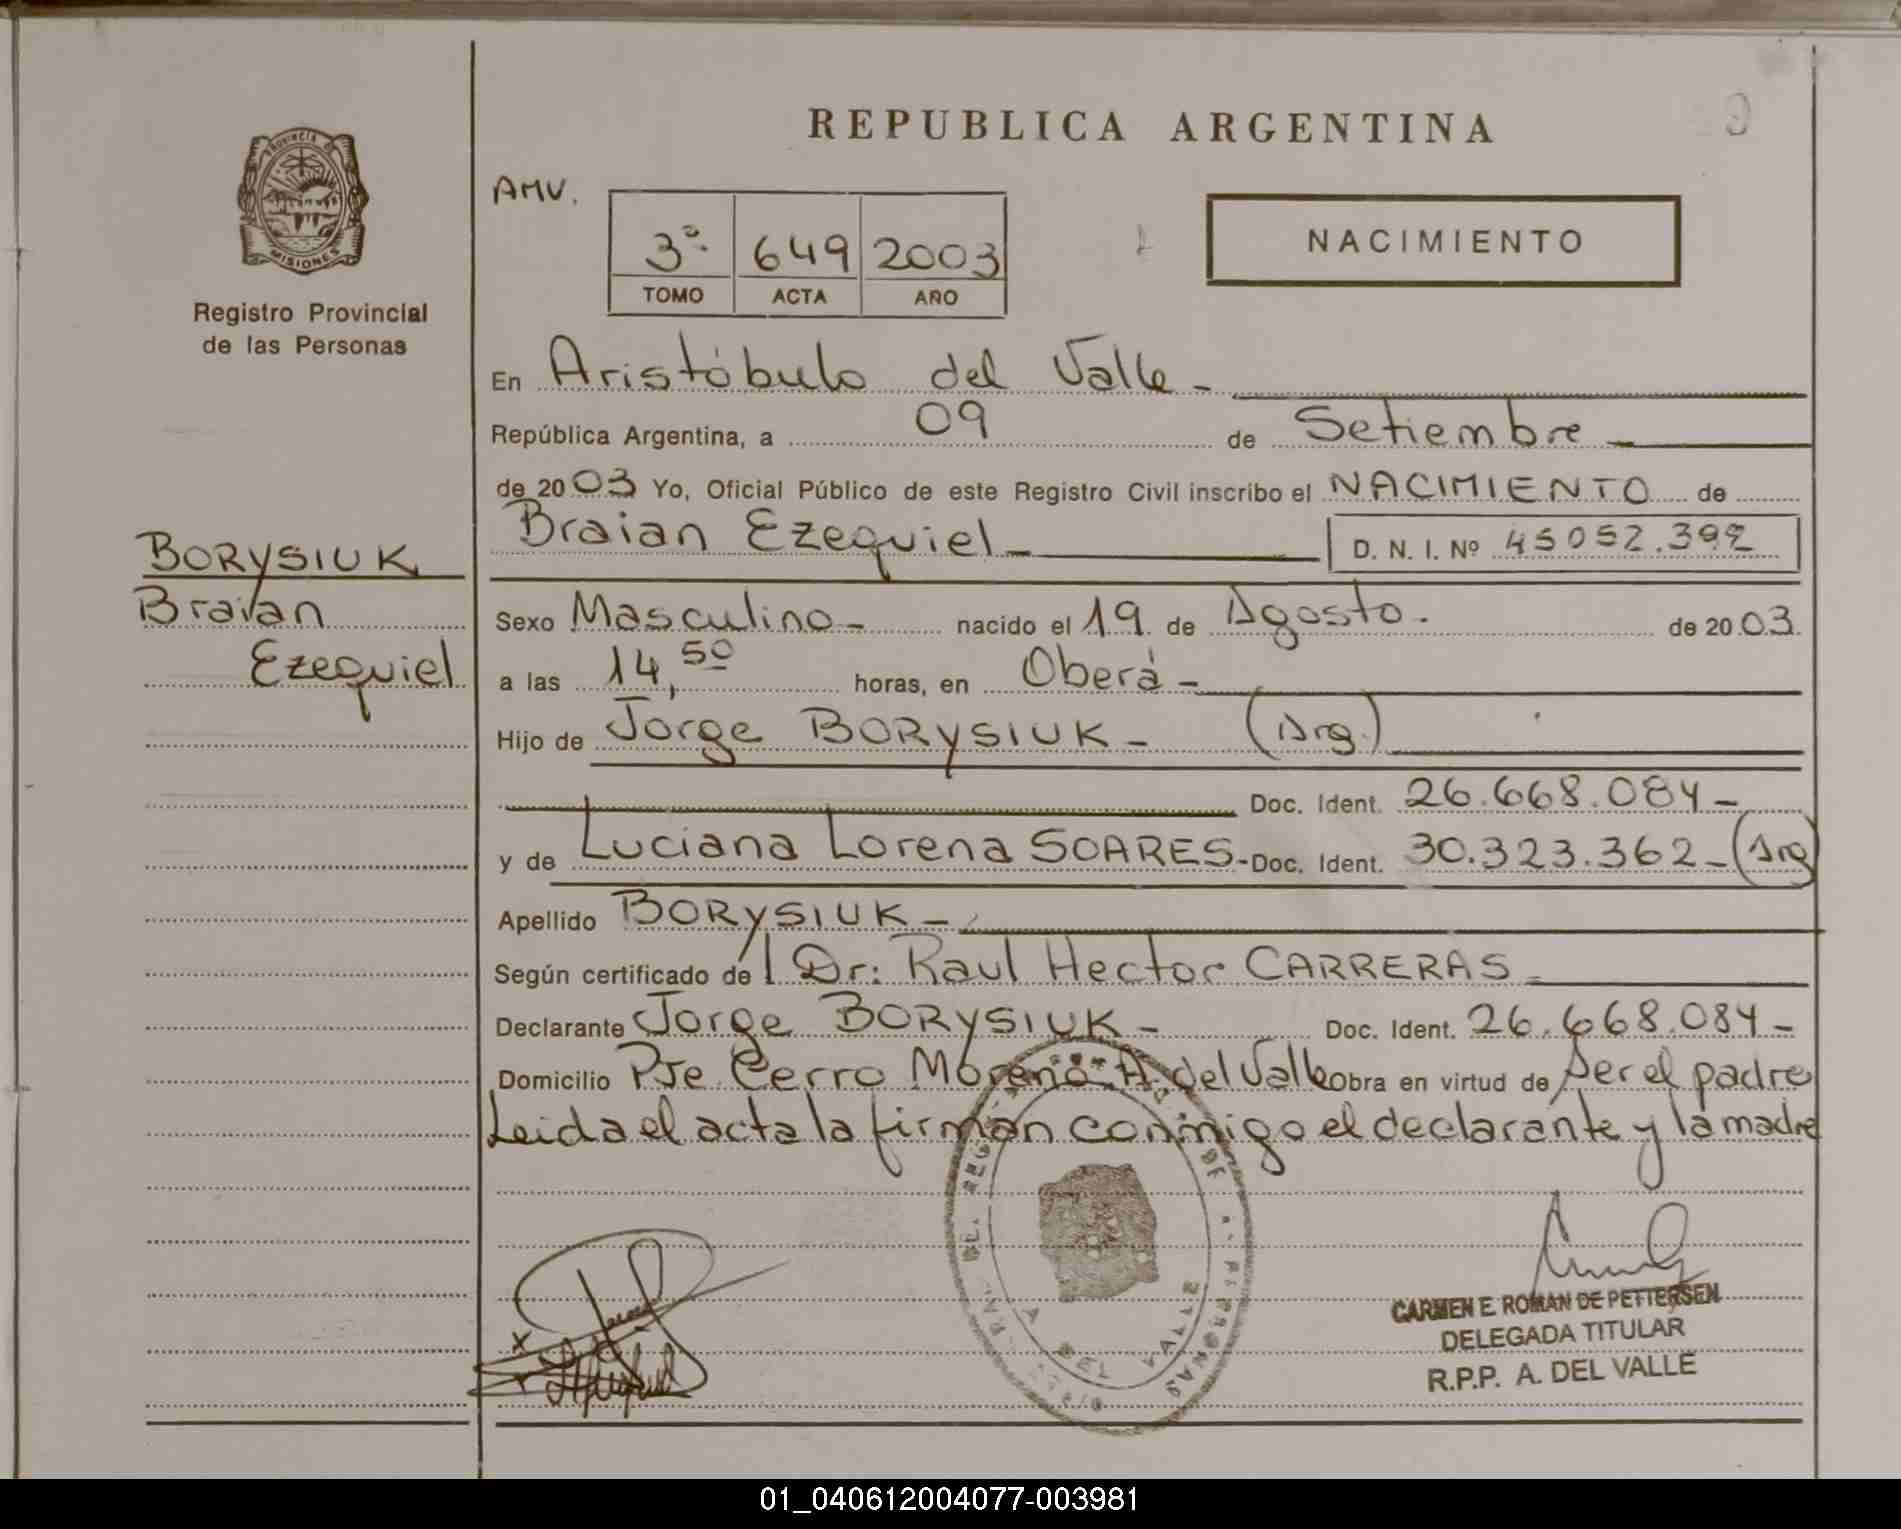 REPUBLICA ARGENTINA
PROVINCIA DE
MISIONES
Registro Provincial
de las Personas
AMV.
3º 649 2003
TOMO ACTA AÑO
NACIMIENTO
En Aristóbulo del Valle -
República Argentina, a 09 de Setiembre -
de 2003 Yo, Oficial Público de este Registro Civil inscribo el NACIMIENTO de
Braian Ezequiel - D. N. I. Nº 45052.392
BORYSIUK
Braian
Ezequiel
Sexo Masculino - nacido el 19 de Agosto. de 2003.
a las 14,50 horas, en Oberá -
Hijo de Jorge BORYSIUK - (Arg.)
Doc. Ident. 26.668.084 -
y de Luciana Lorena SOARES - Doc. Ident. 30.323.362 - (Arg)
Apellido BORYSIUK -
Según certificado de l Dr: Raul Hector CARRERAS
Declarante Jorge BORYSIUK - Doc. Ident. 26.668.084 -
Domicilio Pje Cerro Moreno - A. del Valle Obra en virtud de Ser el padre
Leida el acta la firman conmigo el declarante y la madre
CARMEN E. ROMAN DE PETTERSEN
DELEGADA TITULAR
R.P.P. A. DEL VALLE
01_040612004077-003981